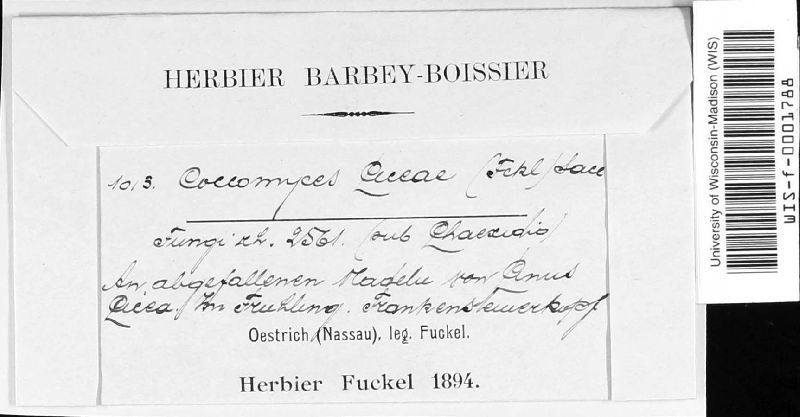 HERBIER BARBEY-BOISSIER
1013. Coccomyces Piceae (Fckl) Sacc
Fungi rh. 2561. (sub Phacidio)
An abgefallenen Nadeln von Pinus
Picea, Im Frühling.
Oestrich, (Nassau), leg. Fuckel.
Herbier Fuckel 1894.
University of Wisconsin-Madison (WIS)
WIS-f-0001788